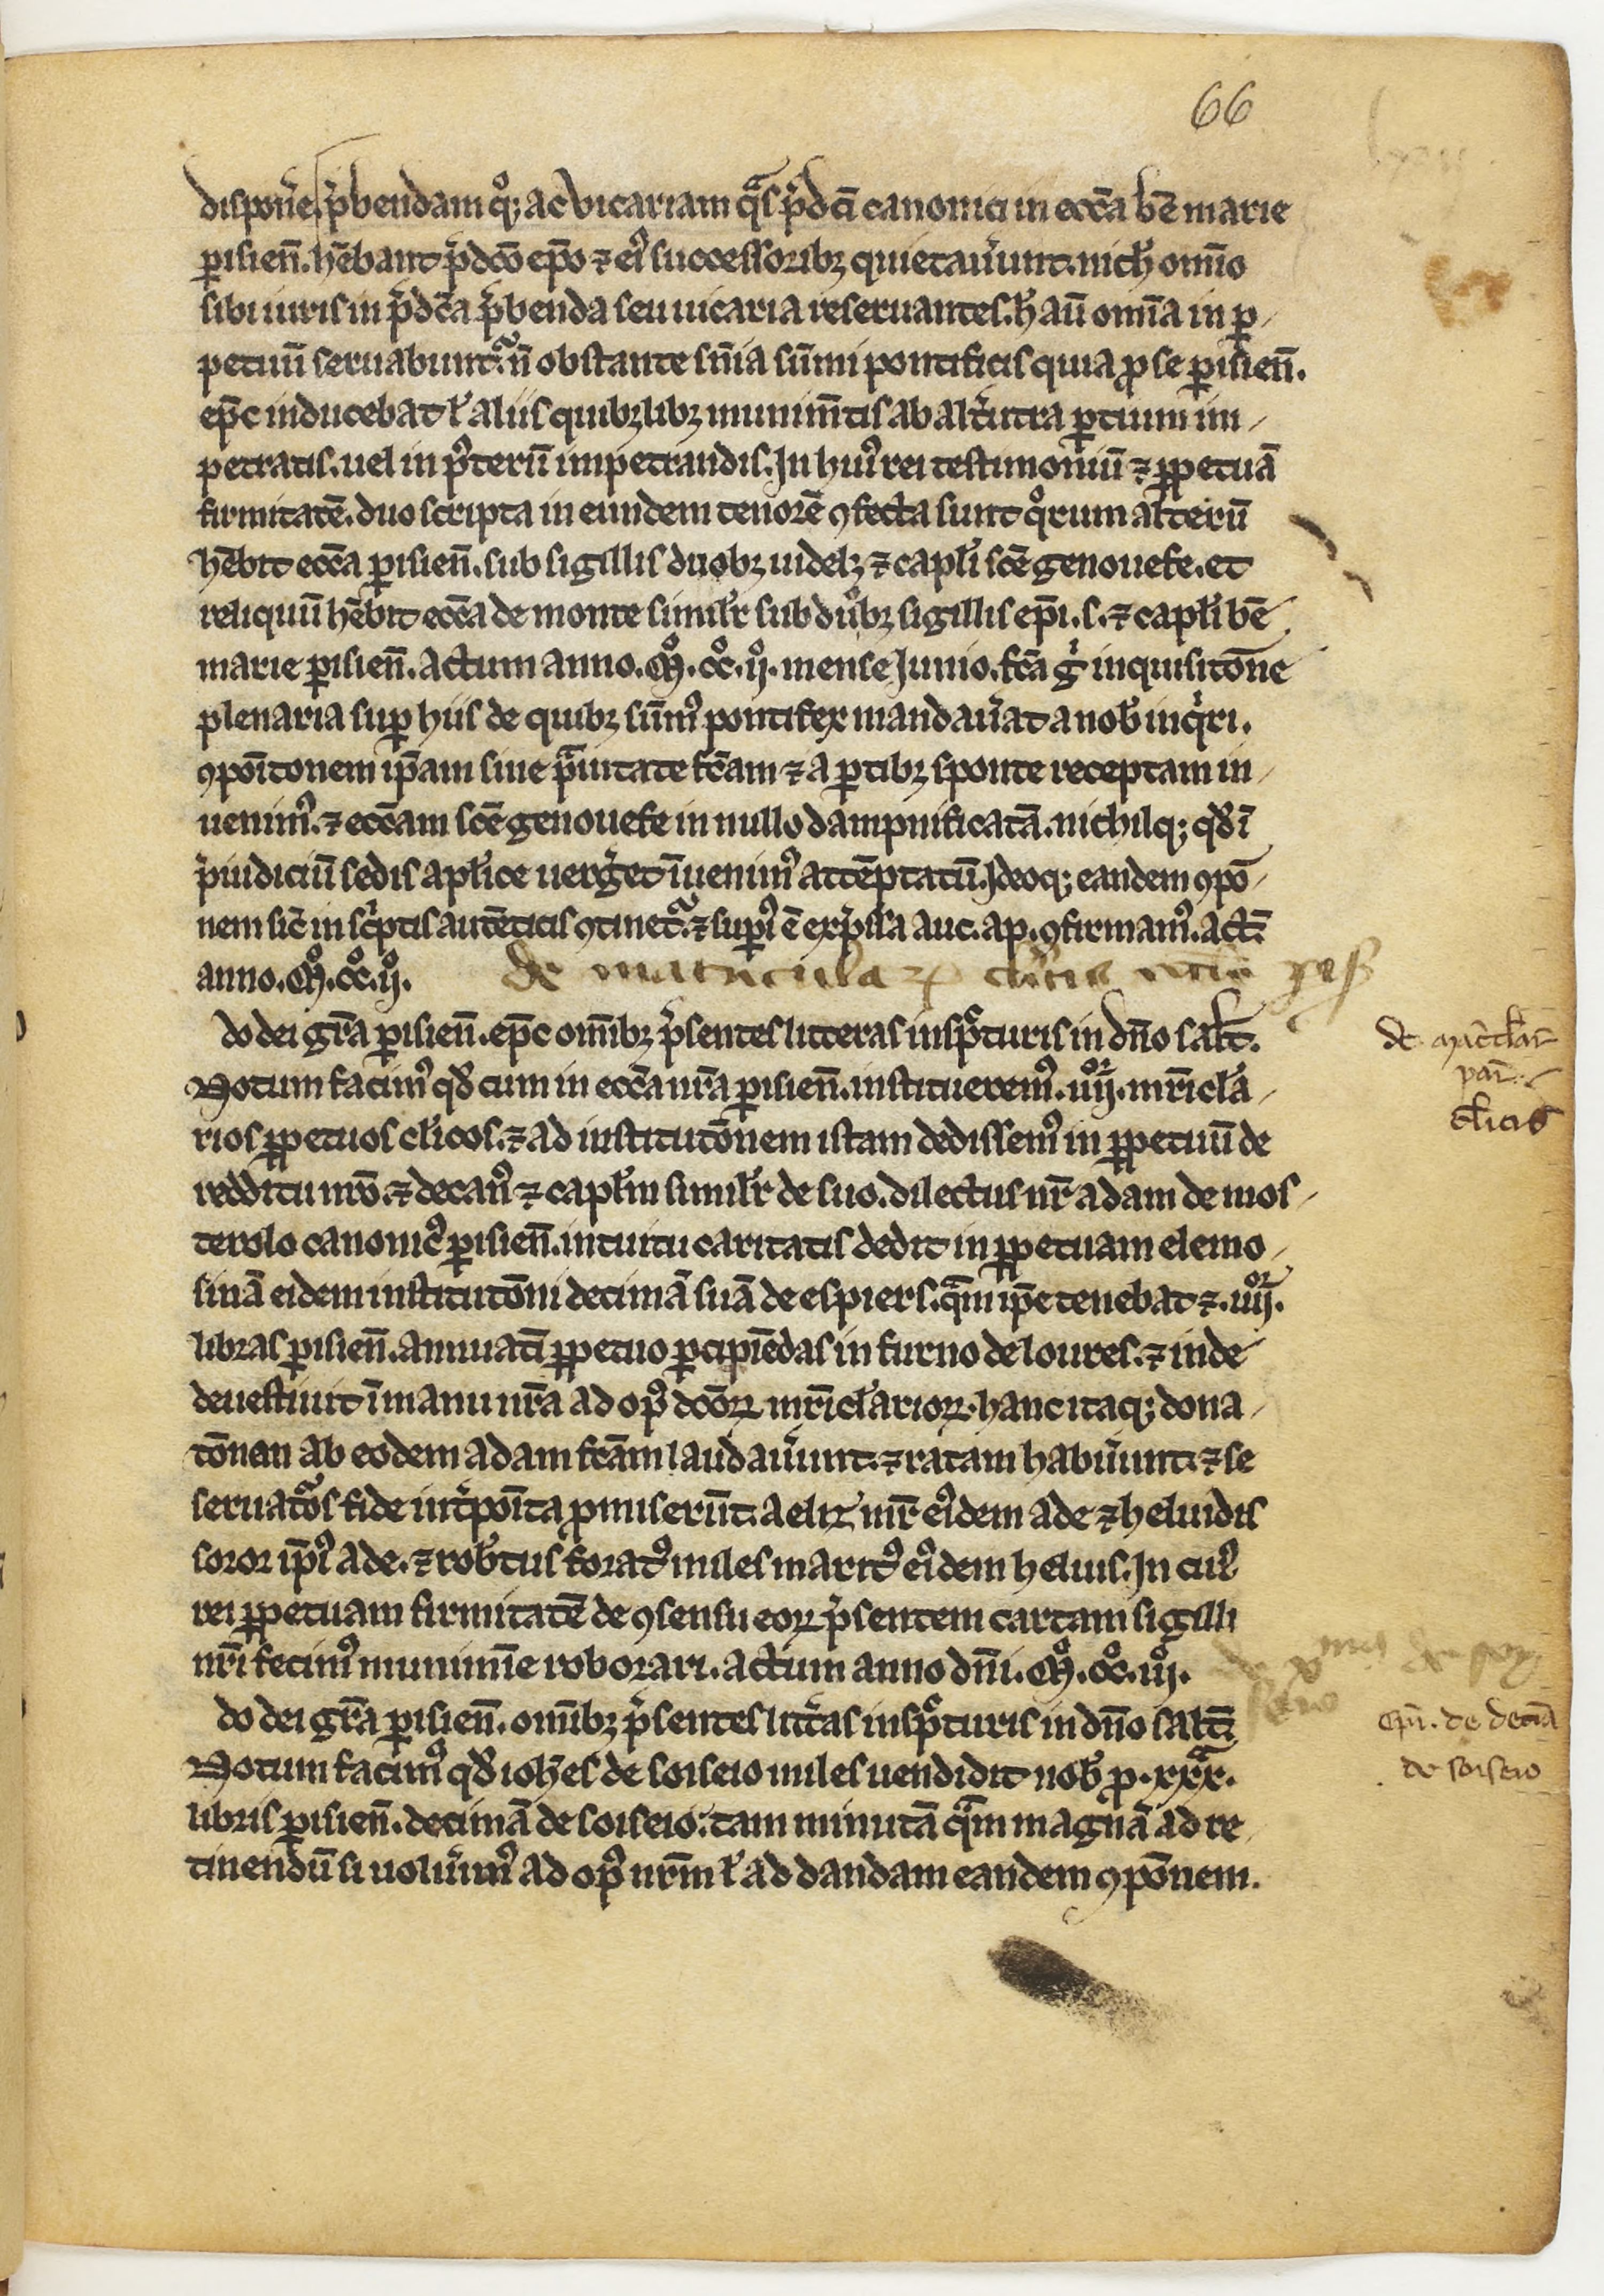 66
disponẽ. p̃bendam q̊; ac vicariam q̃s p̃dc̃i canonici in ecc̃a bẽ marie
ꝑisieñ. hẽbant p̃dc̃o ep̃o ⁊ eiꝰ successoribꝫ quietaũunt. nich̃ om̃o
sibi iuris in p̃dc̃a p̃benda seu uicaria reseruantes. h̃ aũ om̃ia in ꝑ-
petuũ seruabunt᷑. ñ obstante sñia sũmi pontificis quia ꝓ se ꝑisieñ.
ep̃c inducebat ł aliis quibꝫlibꝫ munim̃tis ab alt̃utra ꝑtium im-
petratis. uel in posterũ impetrandis. In huiꝰ rei testimoniũ ⁊ ꝑpetuã
firmitatẽ. duo scripta in eundem tenorẽ ꝯfecta sunt q̊rum alterũ
hẽbit ecc̃a ꝑisieñ. sub sigillis duobꝫ uidelꝫ ⁊ capłi sc̃e genouefe. et
reliquũ hẽbit ecc̃a de monte similr̃ sub duobꝫ sigillis ep̃i. s. ⁊ capłi bẽ
marie ꝑisieñ. Actum anno. M̊. cc̊. ij̊. mense Junio. fc̃a g̊ inquisitõne
plenaria suꝑ hiis de quibꝫ sũmꝰ pontifex mandaũat a nob̃ inq̃ri.
ꝯpõitonem ip̃am sine p̃uitate fc̃am ⁊ a ꝑtibꝫ sponte receptam in-
uenimꝰ. ⁊ ecc̃am sc̃e genouefe in nullo dampnificatã. nichilq; qd̃ ĩ
p̃iudiciũ sedis aplice uerg̃et ĩuenimꝰ attẽptatũ. Ideoq; eandem ꝯpõ-
nem sic̃ in sc̃ptis autẽticis ꝯtinet᷑. ⁊ supiꝰ ẽ exp̃ssa auc. ap. ꝯfirmamꝰ. act̃
anno. M̊. cc̊. ij̊. de matricula
do dei gr̃a ꝑisieñ. ep̃c om̃ibꝫ p̃sentes litteras insp̃cturis in dño salt̃.
Notum facimꝰ qd̃ cum in ecc̃a nr̃a ꝑisieñ. institueremꝰ. iiij̊ʳ. mr̃icła-
rios ꝑpetuos cl̃icos. ⁊ ad institutõnem istam dedissemꝰ in ꝑpetuũ de
redditu nr̃o. ⁊ decanꝰ ⁊ capłm similr̃ de suo. dilectus nr̃ adam de mos-
terolo canonicꝰ ꝑisieñ. intuitu caritatis dedit in ꝑpetuam elemo-
sinã eidem institutõni decimã suã de espiers. q̃m ip̃e tenebat ⁊. iiij̊ʳ.
libras ꝑisieñ. annuatĩ ꝑpetuo ꝑcipiẽdas in furno de loures. ⁊ inde
deuestiuit ĩ manu nr̃a ad opꝰ dc̃oꝝ mr̃iclarioꝝ. hanc itaq; dona-
tõnem ab eodem adam fc̃am laudaũunt. ⁊ ratam habũunt. ⁊ se
seruat᷑os fide int̃põita ꝓmiserũt. aeliz mr̃ eiꝰdem ade ⁊ heluidis
soror ip̃iꝰ ade. ⁊ rob̃tus foratꝰ miles maritꝰ eiꝰdem heluis. In cuiꝰ
rei ꝑpetuam firmitatẽ de ꝯsensu eoꝝ p̃sentem cartam sigilli
nr̃i fecimꝰ munimĩe roborari. actum anno dñi. M̊. cc̊. iij̊.
do dei gr̃a ꝑisieñ. om̃ibꝫ p̃sentes litt̃as insp̃cturis in dño salt̃
Notum facimꝰ qd̃ ioh̃es de soiseio miles uendidit nob̃ ꝓ. xxxᵃ.
libris ꝑisieñ. decimã de soiseio. tam minutã q̃m magnã ad re-
tinendũ si uolũimꝰ ad opꝰ nr̃m ł ad dandam eandem ꝯpõnem.
de
clicis
de decia
de soiseio